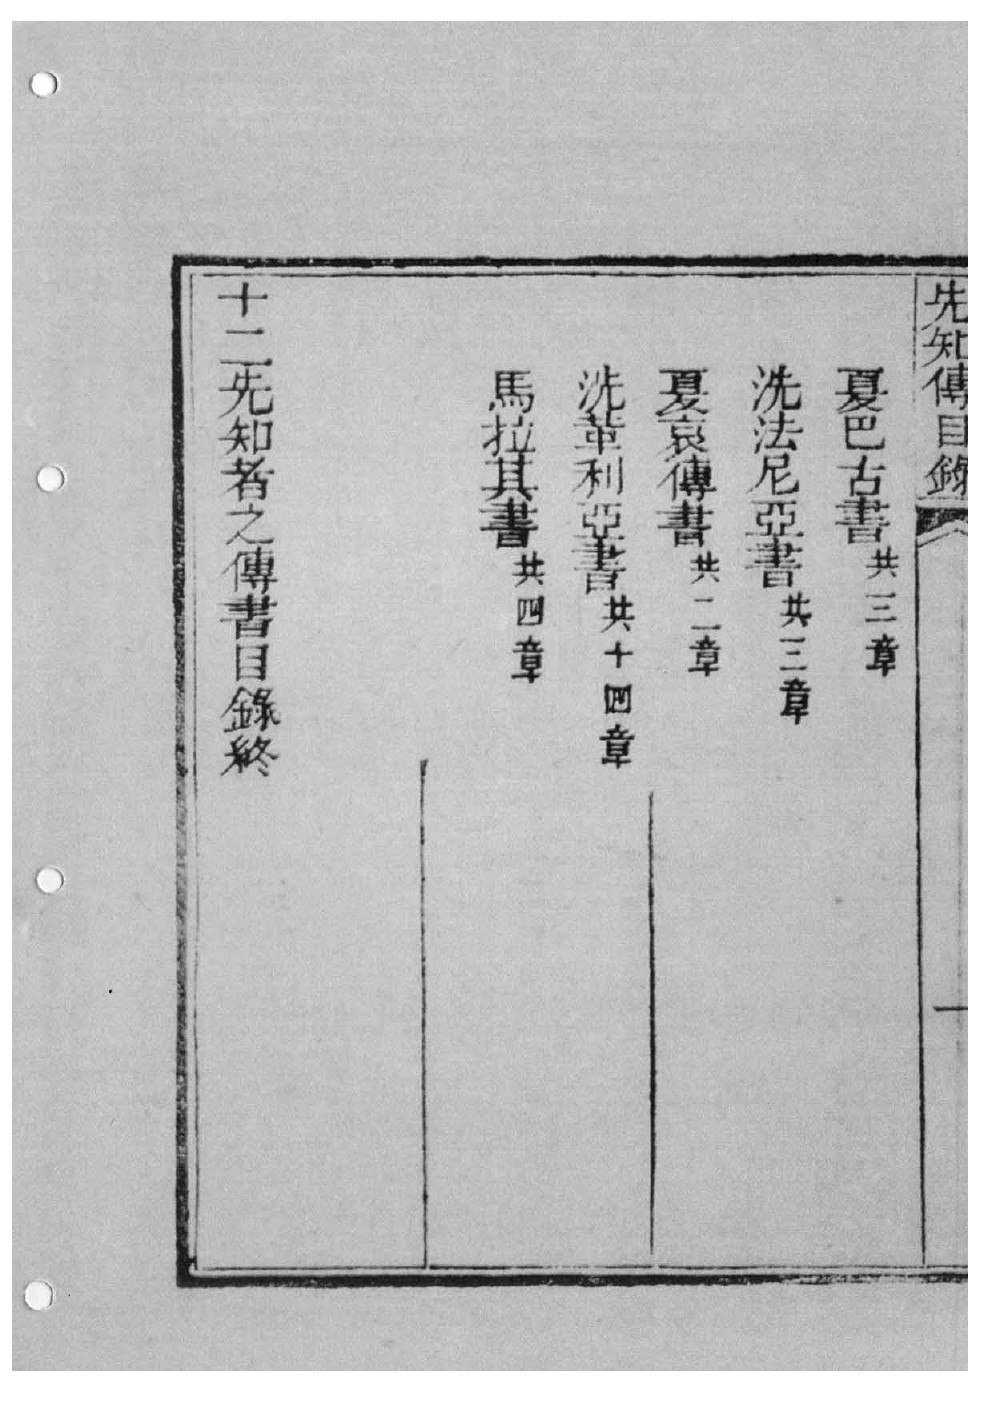 先知傳目錄
一
夏巴古書共三章
洗法尼亞書共三章
夏哀傳書共二章
洗革利亞書共十四章
馬拉其書共四章
十二先知者之傳書目錄終